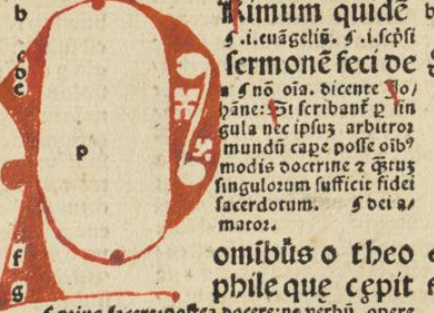 b Rimum quidē b
¶ .i. euāgeliū. ¶ .i. scṗsi
c sermonē feci de
d
e ¶ nō oīa. dicente Jo/
hāne: Si scribant᷑ ꝑ sin
gula nec ipsuꝫ arbitror
p mundū caꝑe posse oibꝰ
modis doctrine ⁊ q̄stuꝫ
singulorum sufficit fidei
sacerdotum. ¶ dei a/
mator.
f omībūs o theo
g phile que cępit